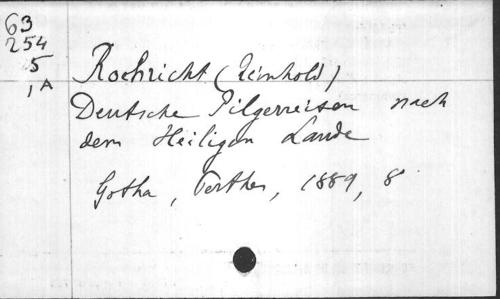 63
254
5
1 A
Roehricht (Reinhold)
Deutsche Pilgerreisen nach
dem Heiligen Lande
Gotha, Perthes, 1889, 8°